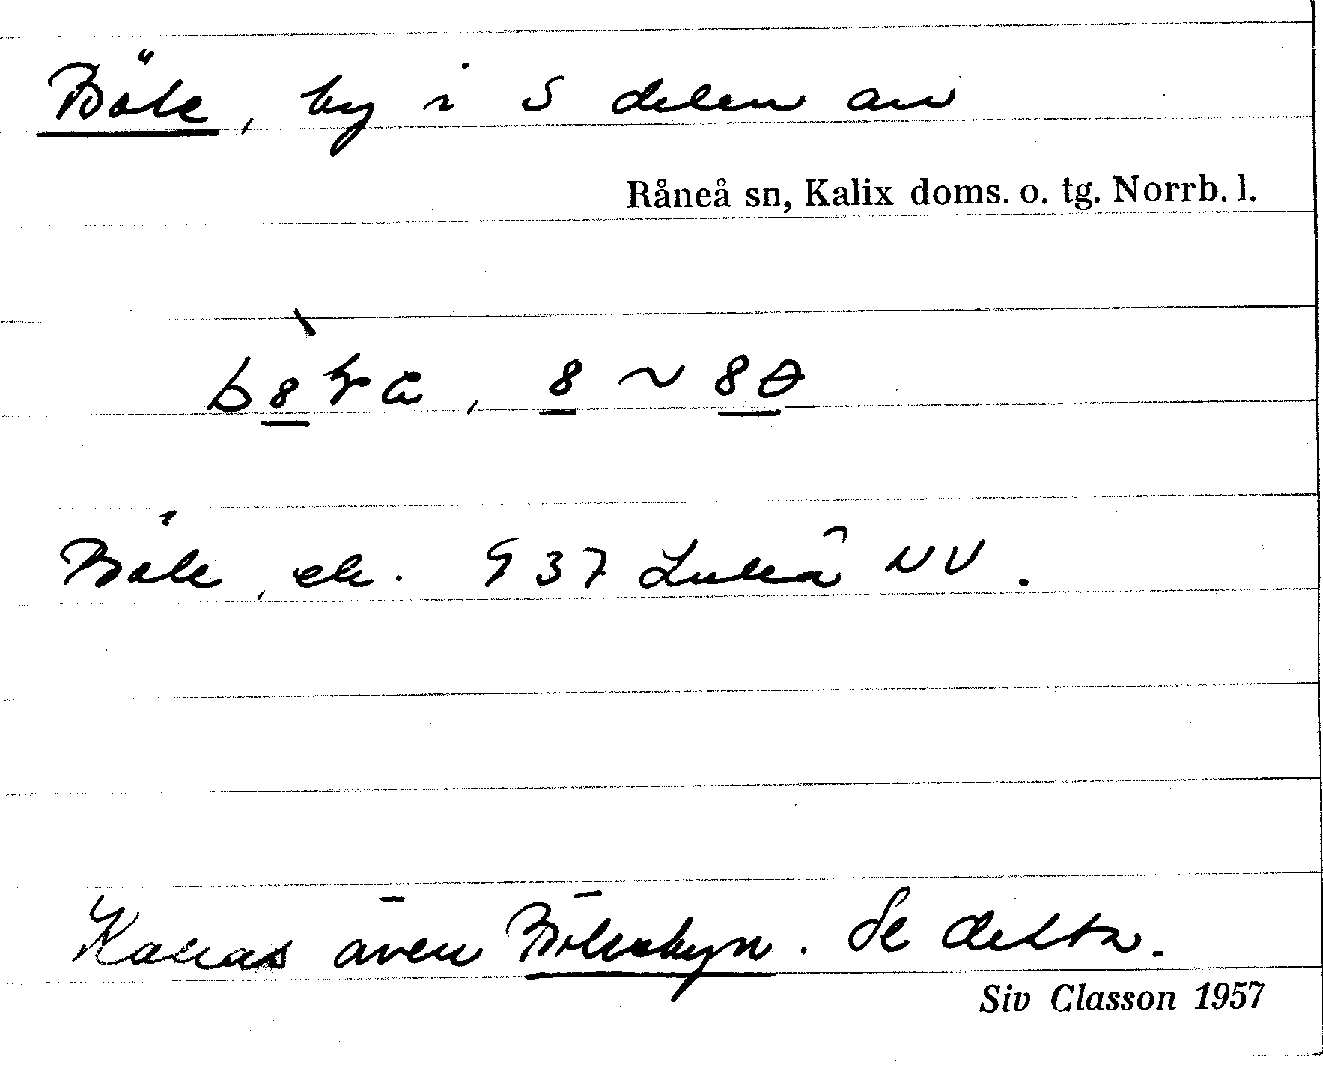 Böle, by i S delen av
Råneå sn, Kalix doms. o. tg. Norrb. l.
Böle, ek. 937 Luleå NV.
Kallas även Bölebyn. Se detta.
Siv Classon 1957